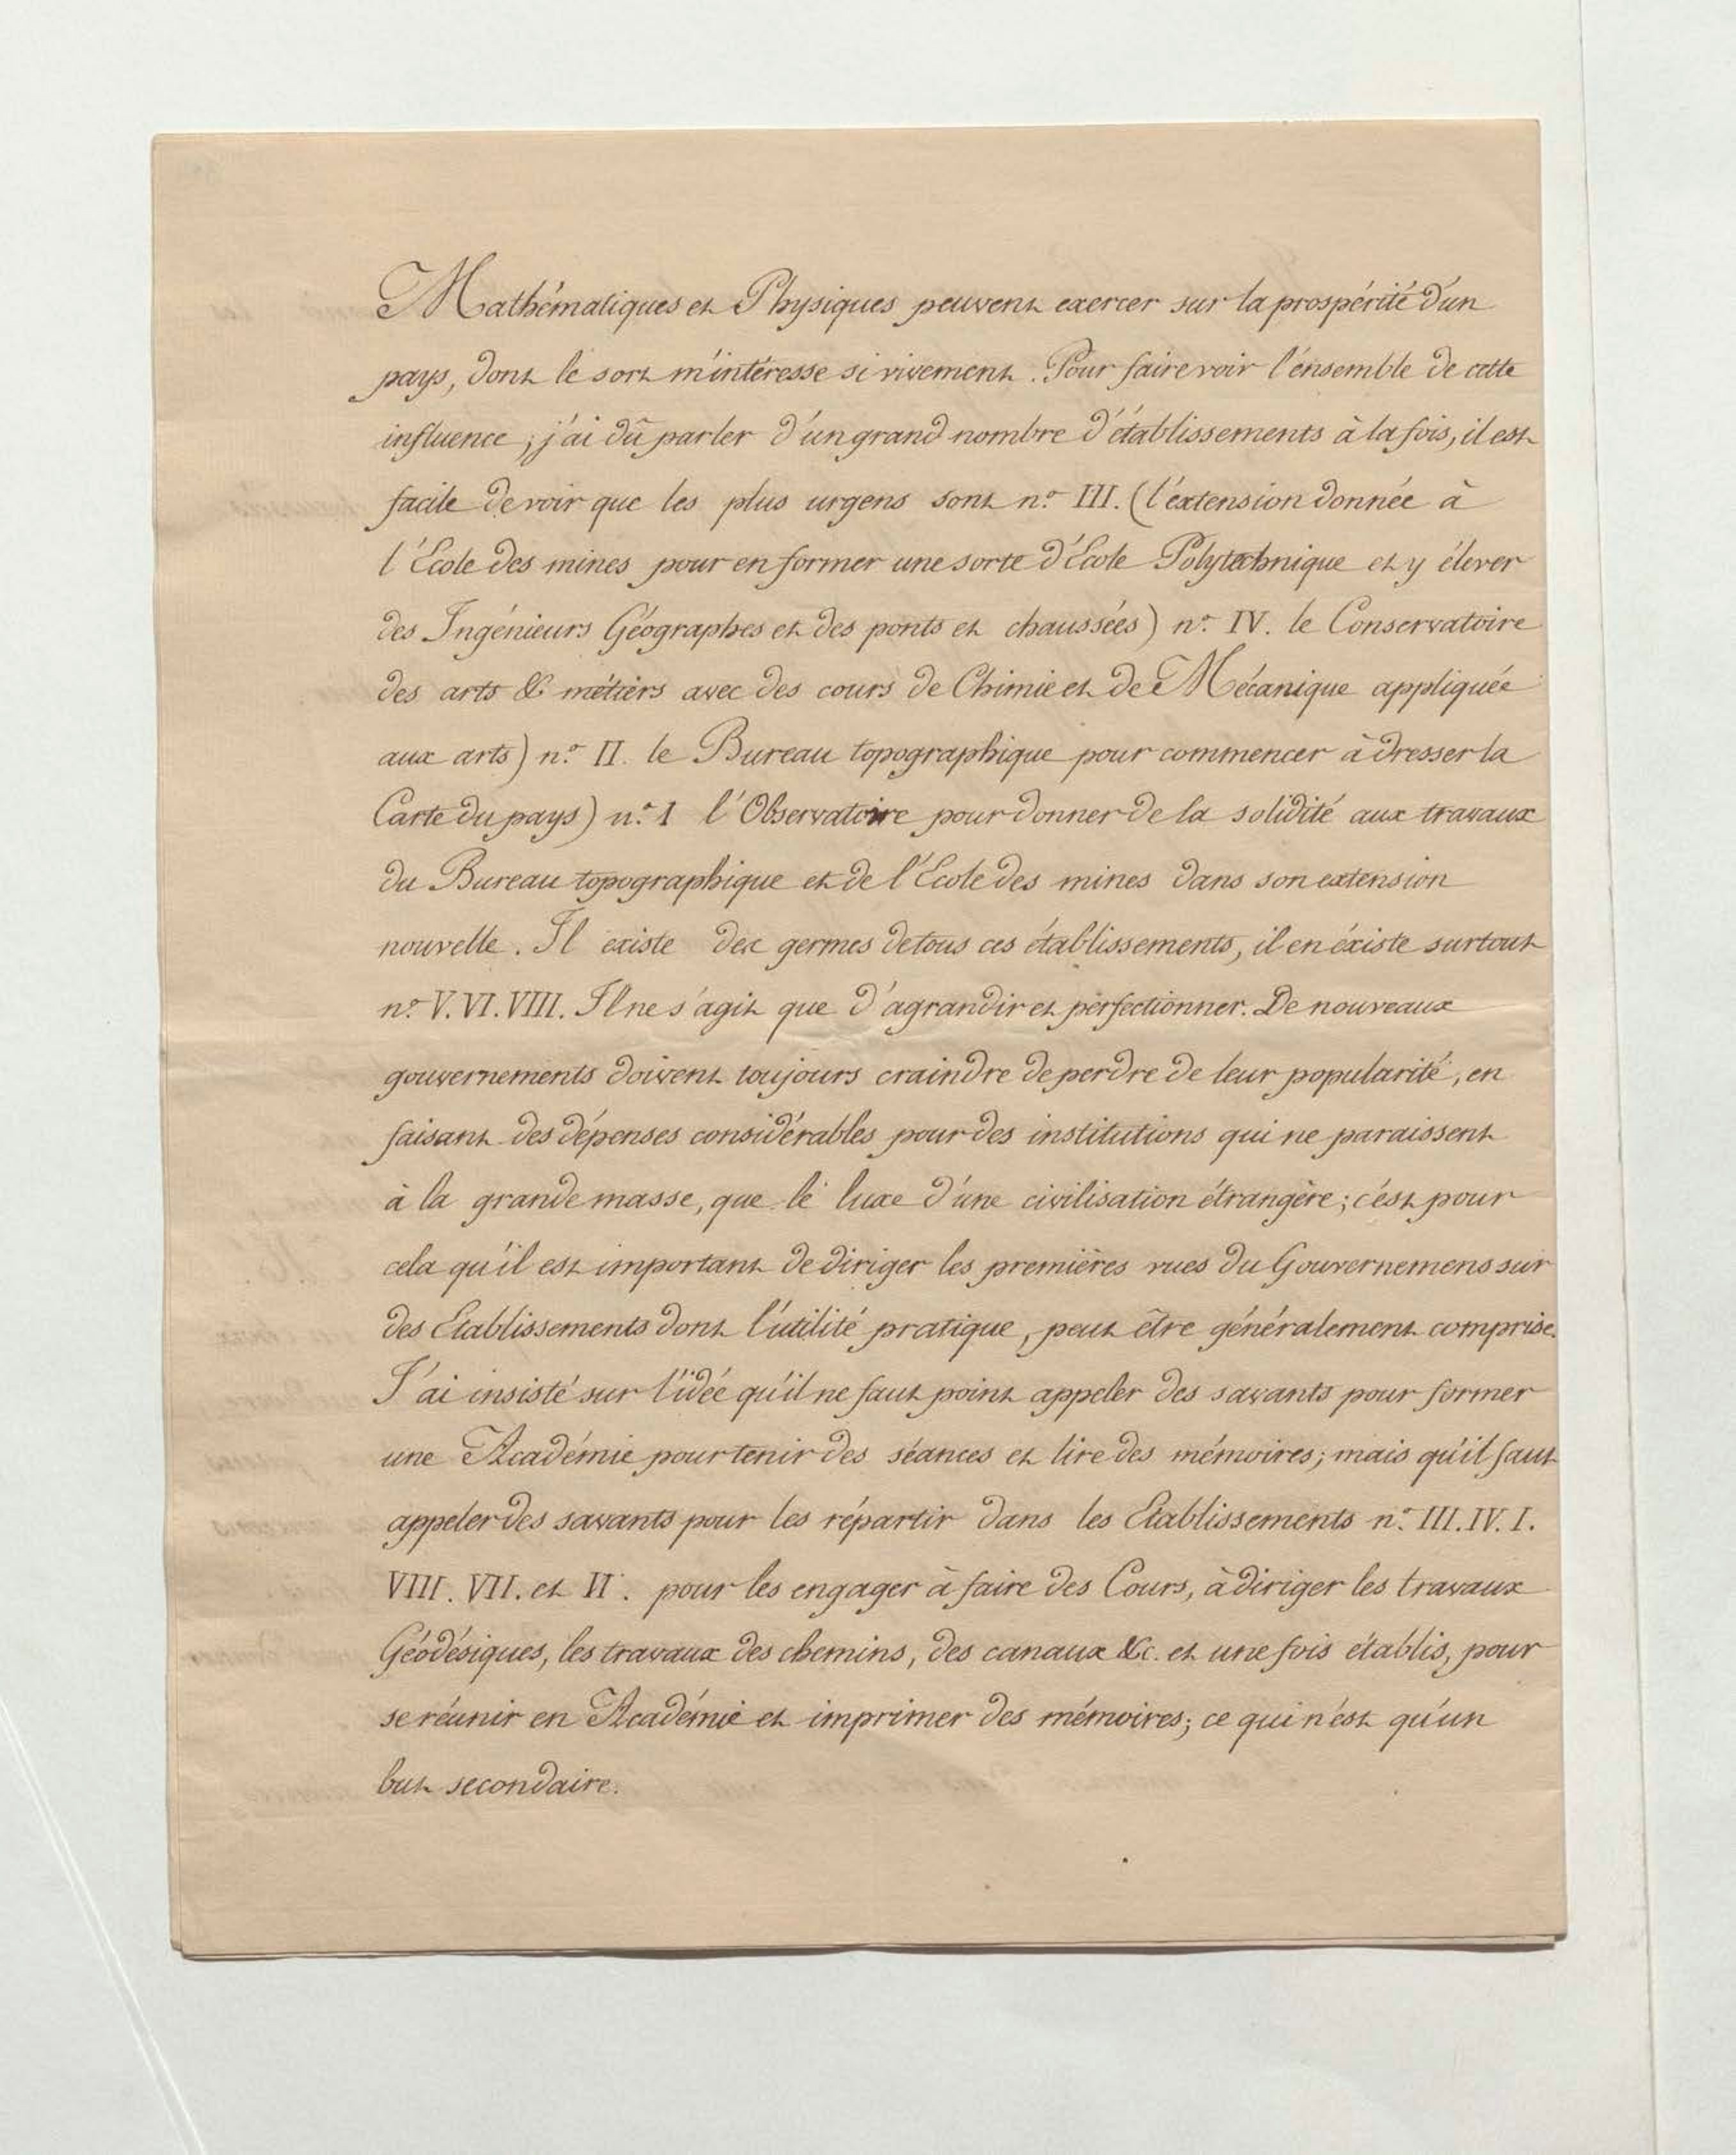 Mathématiques et Physiques peuvent exercer sur la prospérité d'un
pays, dont le sort m'intéresse si vivement. Pour faire voir l'ensemble de cette
influence, j'ai dû parler d'un grand nombre d'établissements à la fois, il est
facile de voir que les plus urgens sont n.º III. (l'extension donnée à
l'École des mines pour en former une sorte d'École Polytechnique et y élever
des Ingénieurs Géographes et des ponts et chaussées) n.º IV. le Conservatoire
des arts & métiers avec des cours de Chimie et de Mécanique appliquée
aux arts) n.º II. le Bureau topographique pour commencer à dresser la
Carte du pays) n.º I l'Observatoire pour donner de la solidité aux travaux
du Bureau topographique et de l'École des mines dans son extension
nouvelle. Il existe des germes de tous ces établissements, il en éxiste surtout
n.º V. VI. VIII. Il ne s'agit que d'agrandir et perfectionner. De nouveaux
gouvernements doivent toujours craindre de perdre de leur popularité, en
faisant des dépenses considérables pour des institutions qui ne paraissent
à la grande masse, que le luxe d'une civilisation étrangère; c'est pour
cela qu'il est important de diriger les premières vues du Gouvernemens sur
des Etablissements dont l'utilité pratique, peut être généralement comprise.
J'ai insisté sur l'idée qu'il ne faut point appeler des savants pour former
une Académie pour tenir des séances et lire des mémoires; mais qu'il faut
appeler des savants pour les répartir dans les Etablissements n.º III. IV. I.
VIII. VII. et VI. pour les engager à faire des Cours, à diriger les travaux
Géodésiques, les travaux des chemins, des canaux &c. et une fois établis, pour
se réunir en Académie et imprimer des mémoires; ce qui n'est qu'un
but secondaire.